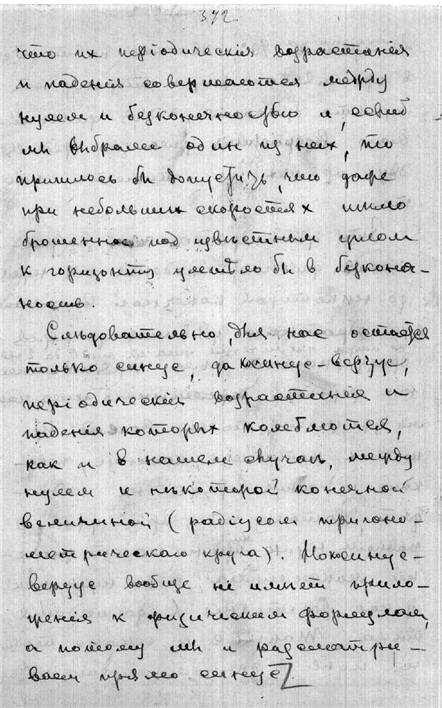 372.
что их періодическія возрастанія
и паденія совершаются между
нулем и безконечностью и, если б
мы выбрали один из них, то
пришлось бы допустить, что даже
при небольших скоростях
брошенное под извѣстным углом
к горизонту улетѣло бы в безконеч-
ность.
Слѣдовательно, для нас остается
только синус, да косинус-верзус,
періодическія возрастанія и
паденія которых колеблются,
как и в нашем случаѣ, между
нулем и нѣкоторой конечной
величиной (радіусом тригоно-
метрическаго круга). Но косинус-
верзус вообще не имѣет прило-
женія к физическим формулам,
а потому мы и разсматри-
ваем прямо синус